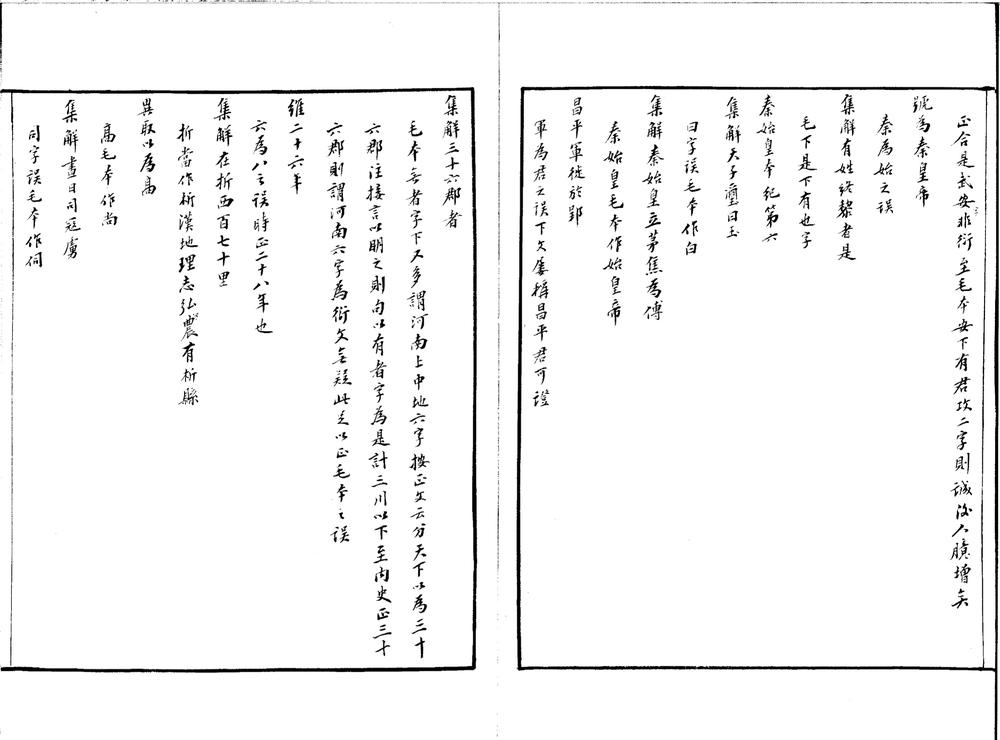 正合是武安非衍至毛本安下有君攻二字則誠淺人臆增矣
號為秦皇帝
秦為始之誤
集解有姓終黎者是
毛下是下有也字
秦始皇本紀第六
集解天子璽曰玉
曰字誤毛本作白
集解秦始皇立茅焦為傅
秦始皇毛本作始皇帝
昌平軍徙於郢
軍為君之誤下文屢稱昌平君可證
集解三十六郡者
毛本無者字下又多謂河南上中地六字按正文云分天下以為三十
六郡注接言以明之則句以有者字為是計三川以下至內史正三十
六郡則謂河南六字為衍文無疑此足以正毛本之誤
維二十六年
六為八之誤時正二十八年也
集解在折西百七十里
折當作析漢地理志弘農有析縣
異取以為高
高毛本作尚
集解晝日司寇虜
司字誤毛本作伺